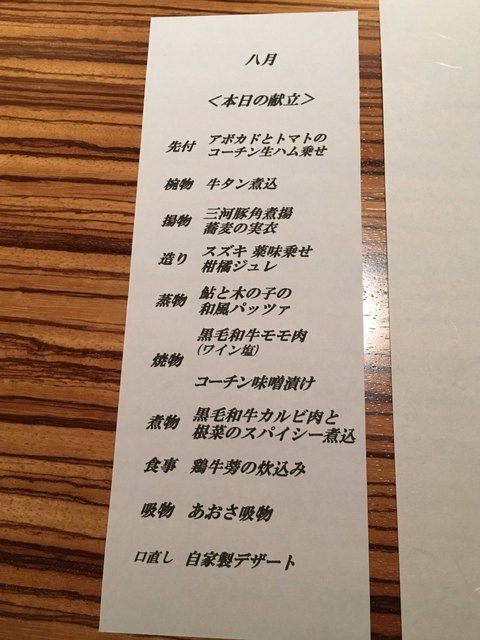 八月
＜本日の献立＞
先付 アボカドとトマトの
コーチン生ハム乗せ
椀物 牛タン煮込
揚物 三河豚角煮揚
蕎麦の実衣
造り スズキ 薬味乗せ
柑橘ジュレ
蒸物 鮎と木の子の
和風パッツァ
焼物 黒毛和牛モモ肉
（ワイン塩）
コーチン味噌漬け
煮物 黒毛和牛カルビ肉と
根菜のスパイシー煮込
食事 鶏牛蒡の炊込み
吸物 あおさ吸物
口直し 自家製デザート